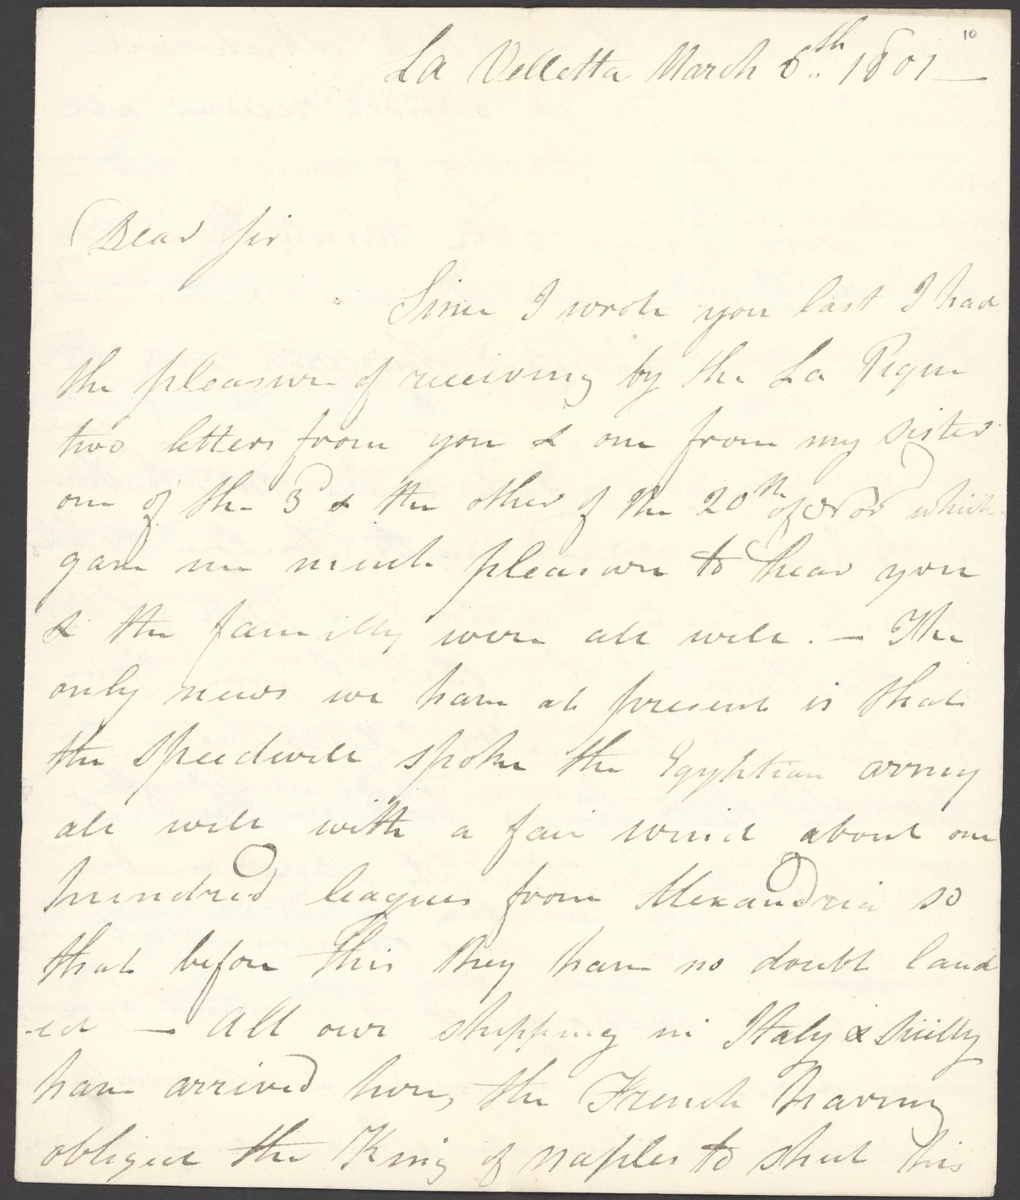 10
La Velletta March 6th 1801 —
Dear Sir
Since I wrote you last I had
the pleasure of receiving by the La Pique
two letters from you & one from my sister
one of the 3d & the other of the 20th of which
gave me much pleasure to hear you
& the familly were all well. — The
only news we have at present is that
the Speedwell spoke the Egyptian army
all well with a fair wind about one
hundred leagues from Alexandria so
that before this they have no doubt land
-ed — All our shipping in Italy & Sicilly
have arrived here, the French having
obliged the King of Naples to shut his